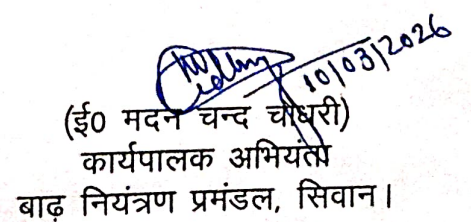 10/03/2026
(ई0 मदन चन्द चौधरी)
कार्यपालक अभियंता
बाढ़ नियंत्रण प्रमंडल, सिवान।